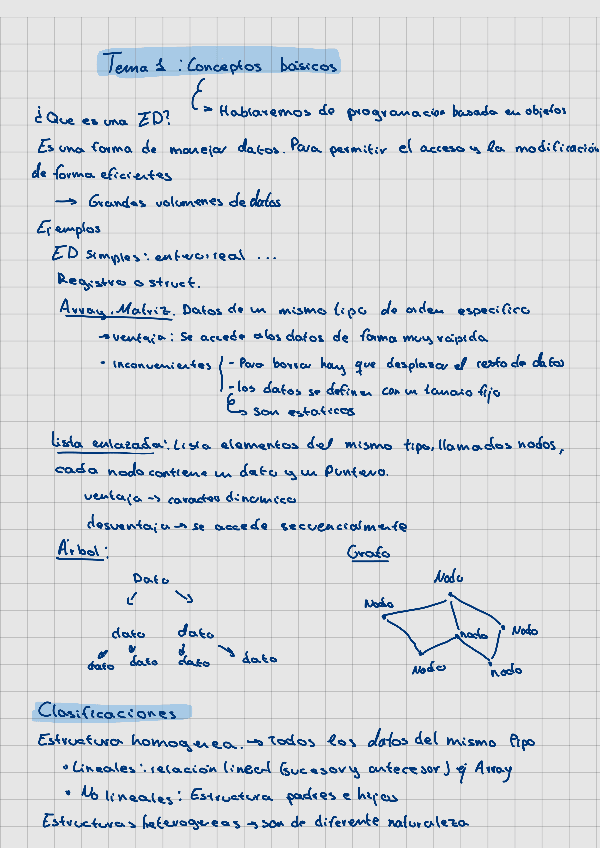 Tema 1 : Conceptos básicos
↳ Hablaremos de programacion basada en objetos
¿Que es una ED?
Es una forma de manejar datos. Para permitir el acceso y la modificación
de forma eficientes
→ Grandes volumenes de datos
Ejemplos
ED simples: entero, real ...
Registro o struct.
Array, Matriz. Datos de un mismo tipo de orden especifico
→ ventaja: Se accede a los datos de forma muy rápida
• inconvenientes - Para borrar hay que desplazar el resto de datos
- los datos se definen con un tamaño fijo
↳ son estaticos
Lista enlazada: Lista elementos del mismo tipo, llamados nodos,
cada nodo contiene un dato y un Puntero.
ventaja → caracter dinamico
desventaja → se accede secuencialmente
Árbol: Grafo
Dato
dato dato
dato dato dato dato
Nodo
Nodo
Nodo
nodo
Nodo
nodo
Clasificaciones
Estructura homogenea. → Todos los datos del mismo tipo
• Lineales: relación lineal (sucesor y antecesor) ej Array
• No lineales: Estructura padres e hijos
Estructuras heterogeneas → son de diferente naturaleza